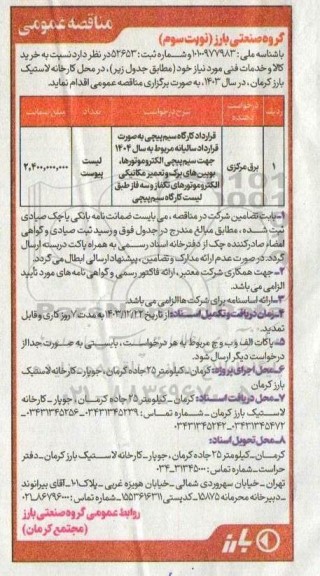 مناقصه عمومی
گروه صنعتی بارز (نوبت سوم)
با شناسه ملی: ۱۰۱۰۰۹۷۷۹۸۳ و شماره ثبت: ۵۲۶۵۳ در نظر دارد نسبت به خرید
کالا و خدمات فنی مورد نیاز خود (مطابق جدول زیر)، در محل کارخانه لاستیک
بارز کرمان، در سال ۱۴۰۳، به صورت برگزاری مناقصه عمومی اقدام نماید.
ردیف درخواست دهنده شرح درخواست تعداد مبلغ ضمانت
۱ برق مرکزی
قرارداد کارگاه سیم پیچی به صورت
قرارداد سالیانه مربوط به سال ۱۴۰۴
جهت سیم پیچی الکتروموتورها،
بوبین های برک و تعمیر مکانیکی
الکتروموتورهای تکفاز و سه فاز طبق
لیست کارگاه سیم پیچی
لیست پیوست
۲,۴۰۰,۰۰۰,۰۰۰
۱- بابت تضامین شرکت در مناقصه، می بایست ضمانت نامه بانکی یا چک صیادی
ثبت شده، مطابق مبالغ مندرج در جدول فوق و رسید ثبت صیادی و گواهی
امضاء صادرکننده چک از دفترخانه اسناد رسمی به همراه پاکت دربسته ارسال
گردد. در صورت عدم ارائه مدارک و تضامین، پیشنهاد ارسالی ابطال می گردد.
۲- جهت همکاری شرکت معتبر، ارائه فاکتور رسمی و گواهی نامه های مورد تأیید
الزامی می باشد.
۳- ارائه اساسنامه برای شرکت ها الزامی می باشد.
۴- زمان دریافت و تکمیل اسناد: از تاریخ ۱۴۰۳/۱۲/۲۲ به مدت ۷ روز کاری و قابل
تمدید.
۵- پاکات الف و ب و ج مربوط به هر درخواست، بایستی به صورت جدا از
درخواست دیگر ارسال شود.
۶- محل اجرای پروژه: کرمان - کیلومتر ۲۵ جاده کرمان، جوپار، کارخانه لاستیک
بارز کرمان
۷- محل دریافت اسناد: کرمان - کیلومتر ۲۵ جاده کرمان - جوپار - کارخانه
لاستیک بارز کرمان - شماره تماس: ۰۳۴۳۱۳۴۵۲۳۹-۰۳۴۳۱۳۴۵۲۵۶-
۰۳۴۳۱۳۴۵۴۷۲-۰۳۴۳۱۳۴۵۲۴۲
۸- محل تحویل اسناد:
کرمان - کیلومتر ۲۵ جاده کرمان، جوپار - کارخانه لاستیک بارز کرمان - دفتر
حراست - شماره تماس: ۳۱۳۴۵۰۰۰-۰۳۴
تهران - خیابان سهروردی شمالی - خیابان هویزه غربی - پلاک ۱۰۱ - آقای بیرانوند
- دبیرخانه محرمانه ۱۵۸۷۵ - کدپستی ۱۵۵۳۶۱۶۳۱۱ شماره تماس: ۸۶۷۹۶۰۰۰-۰۲۱
روابط عمومی گروه صنعتی بارز
(مجتمع کرمان)
بارز